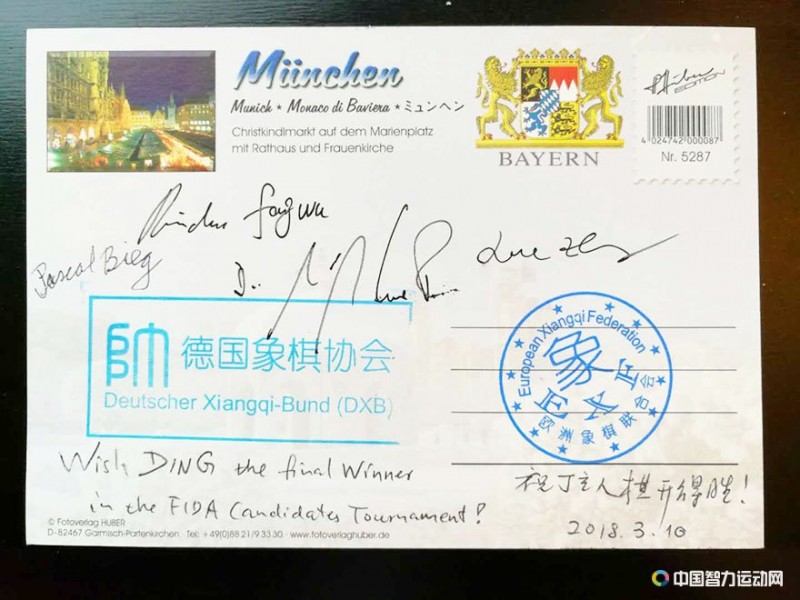 München
Munich ★ Monaco di Baviera ★ ミュンヘン
Christkindlmarkt auf dem Marienplatz
mit Rathaus und Frauenkirche
BAYERN
Huber
EDITION
4 024742 000087
Nr. 5287
Pascal Bieg
帥
德国象棋协会
Deutscher Xiangqi-Bund (DXB)
European Xiangqi Federation
象
EXF
欧洲象棋联合会
Wish DING the final Winner
in the FIDA Candidates Tournament!
祝丁主人棋开得胜!
2018.3.10
© Fotoverlag HUBER
D-82467 Garmisch-Partenkirchen Tel.: +49(0)88 21/9 33 30 www.fotoverlaghuber.de
中国智力运动网